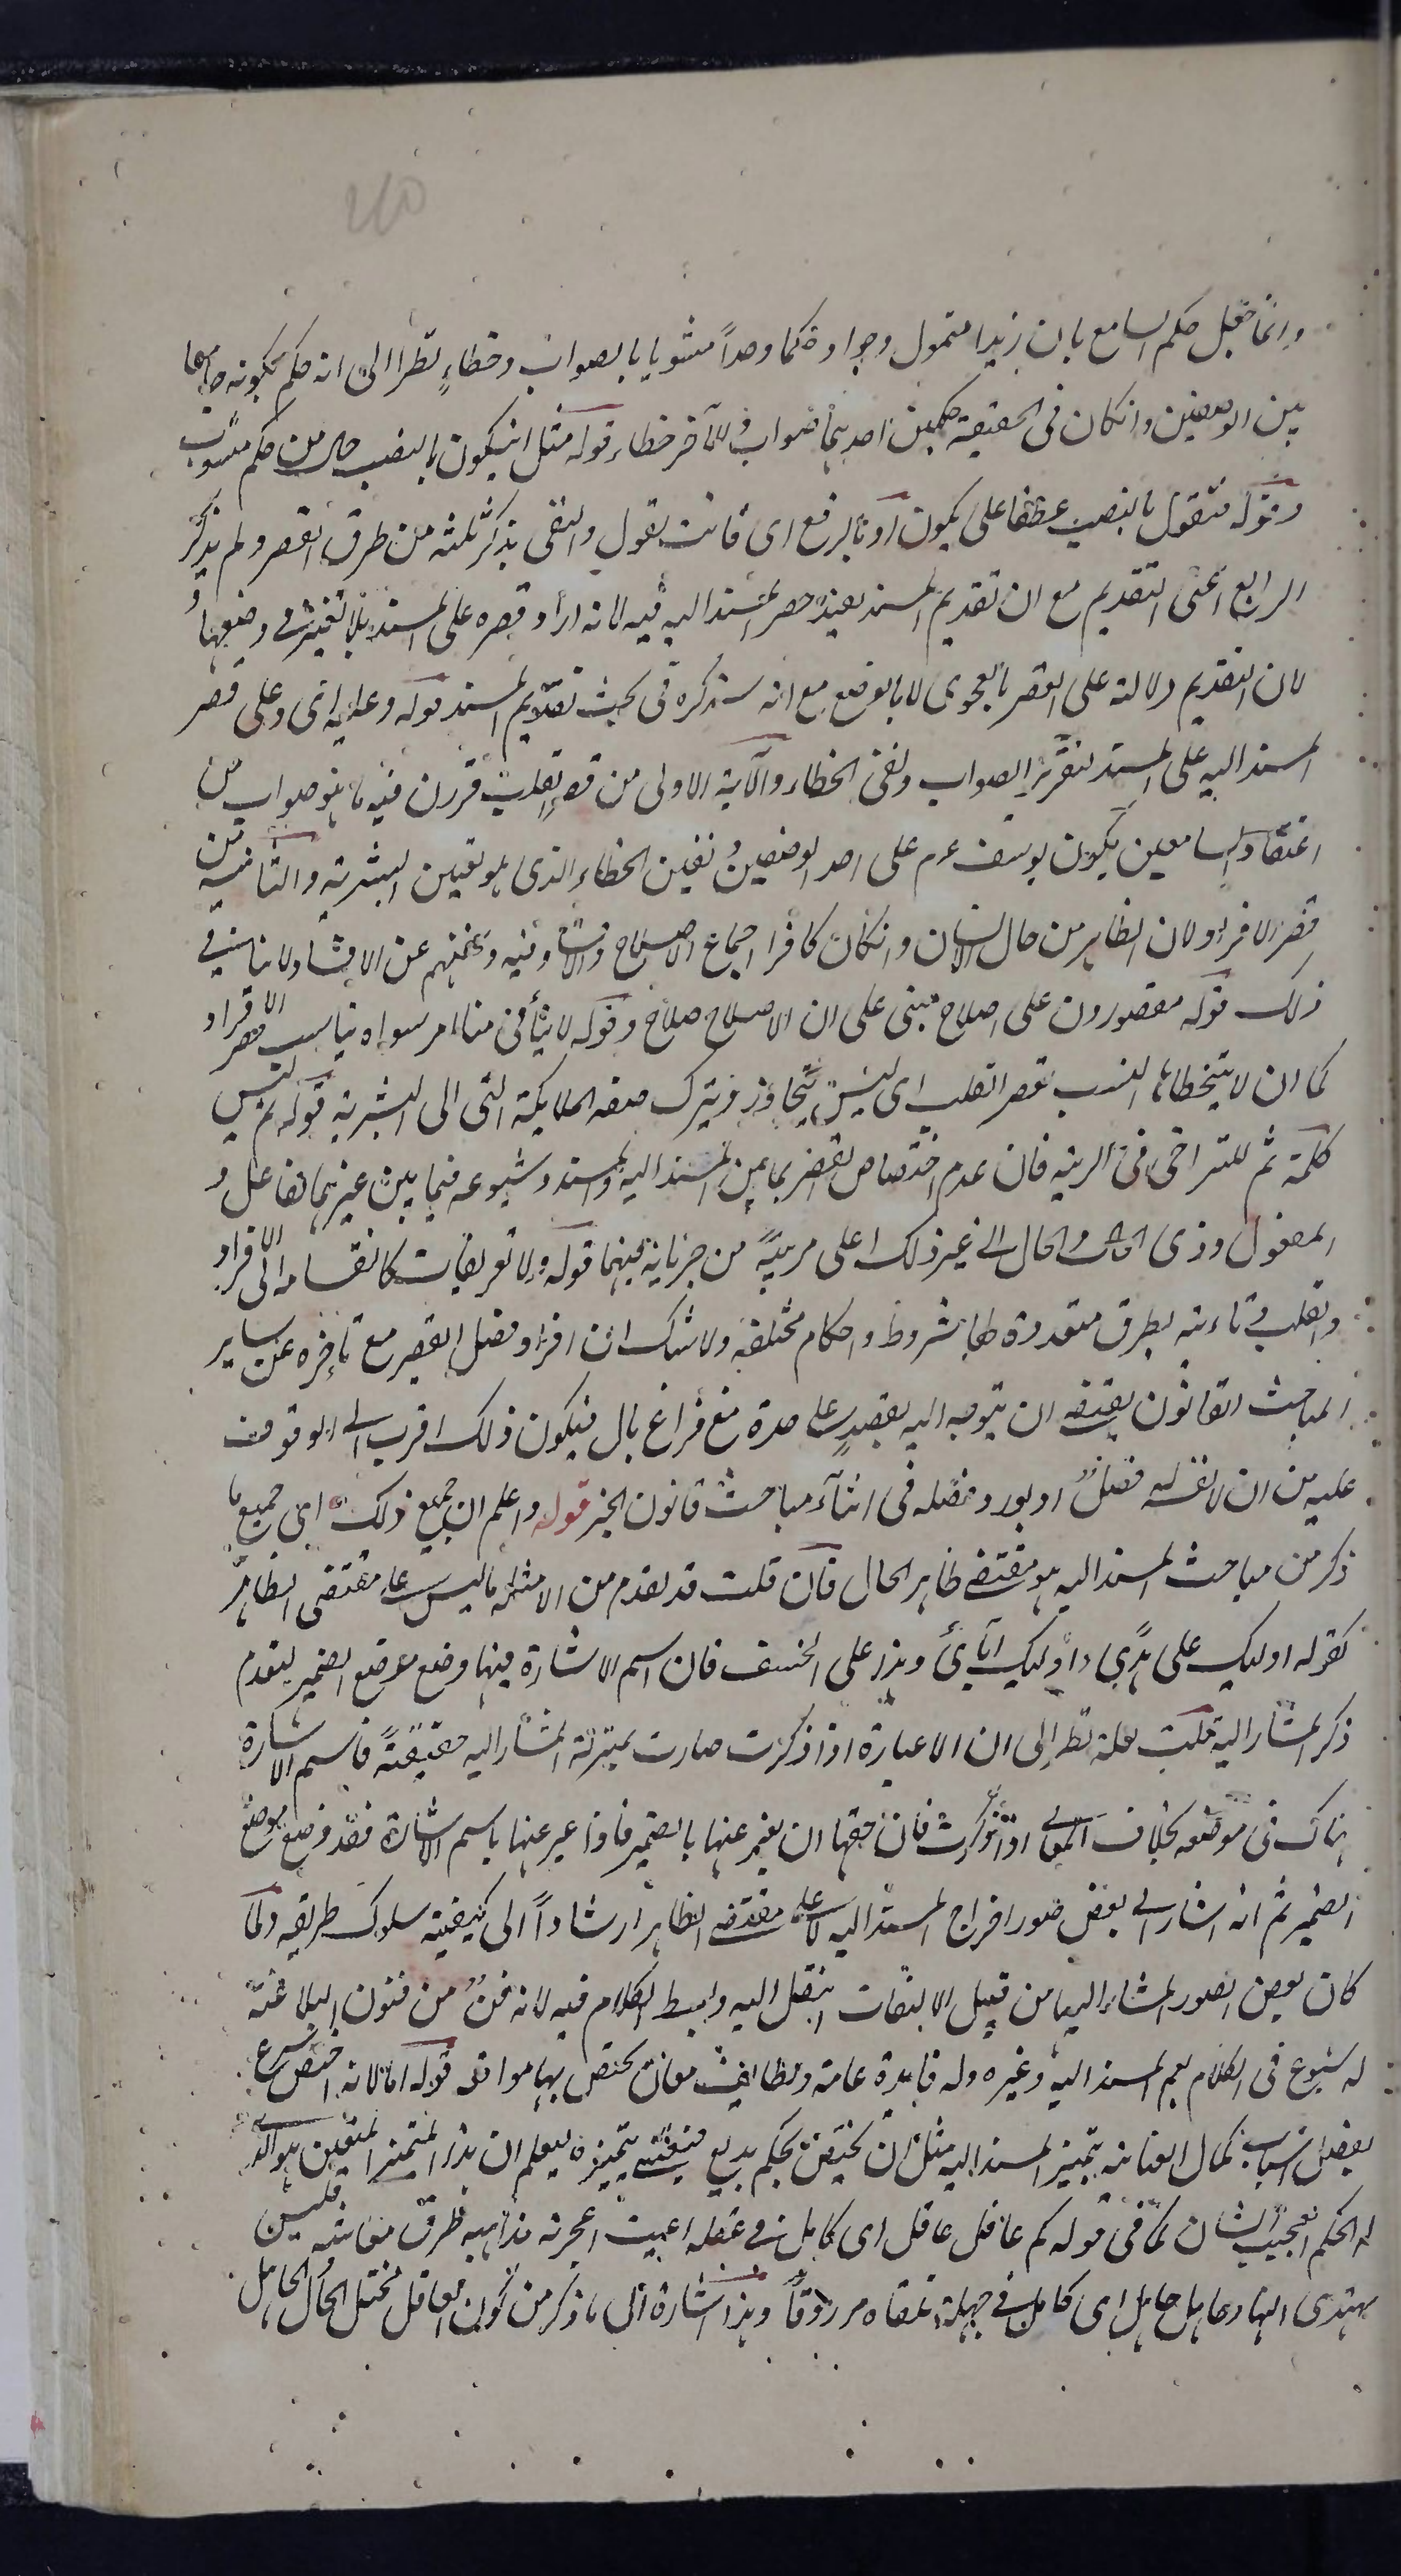 وانما جعل حكم السامع بان زيدا متمول وجواد حكما واحداً مشوبا بالصواب وخطاءٍ نظرا الى انه حكم بكونه جامعا
بين الوصفين وانكان فى الحقيقة حكمين احديهما صواب والآخر خطاء قوله مثل انيكون بالنصب حال من حكم مشوب
وقوله فتقول بالنصب عطفا على يكون او بالرفع اى فانت تقول واكتفى بذكر ثلثة من طرق القصر ولم يذكر
الرابع اعنى التقديم مع ان تقديم المسند يفيد حصر المسند اليه فيه لانه اراد قصره على المسند بلا تغيير فى وضعهما
لان التقديم دلالة على القصر بالفحوى لا بالوضع مع انه سيذكره فى بحث تقديم المسند قوله وعليه اى وعلى قصر
المسند اليه على المسند لتقرير الصواب ونفى الخطاء والآية الاولى من قصر القلب قررن فيه ما هو صواب من
اعتقاد السامعين بكون يوسف عم على احد الوصفين ونفين الخطاء الذى هو تعيين البشرية والثانية من
قصر الافراد لان الظاهر من حال الانسان وانكان كافرا اجماع الاصلاح والافساد فيه ولا ينافى
ذلك قوله مقصورون على اصلاح مبنى على ان الاصلاح صلاح وقوله لا يتأتى منا امر سواه يناسب قصر الافراد
كما ان لا يتخطاها انسب بقصر القلب اى ليس يتجاوز ويترك صفه الملايكة التى الى البشرية قوله ثم ليس
كلمة ثم للتراخى فى الرتبة فان عدم اختصاص القصر بما بين المسند اليه والمسند وشيوعه فيما بين غيرهما كالفاعل و
المفعول وذى الحال والحال الى غير ذلك اعلى مرتبةً من جريانه بينهما قوله ولا تعريفات كانقسامه الى الافراد
والقلب وتاديته بطرق متعددة لها شروط واحكام مختلفة ولا شك ان افراد فصل القصر مع تأخره عن ساير
المباحث القانون يقتضى ان يتوجه اليه بقصدٍ على حدة مع فراغ بال فيكون ذلك اقرب الى الوقوف
عليه من ان لا يفرد له فصلٌ او يورد فصله فى اثنآء مباحث قانون الخبر قوله واعلم ان جميع ذلك اى جميع ما
ذكر من مباحث المسند اليه هو مقتضى ظاهر الحال فان قلت قد تقدم من الامثلة ما ليس على مقتضى الظاهر
كقوله اوليك على هدًى واوليك آبائى وهذا على الخسف فان اسم الاشارة فيها وضع موضع الضمير لتقدم
ذكر المشار اليه قلت لعله نظر الى ان الاعيان اذا ذكرت صارت بمنزلة المشار اليه حقيقةً فاسم الاشارة
هناك فى موضعه بخلاف المعانى اذا ذكرت فان حقها ان يعبر عنها بالضمير فاذا عبر عنها باسم الاشارة فقد وضع موضع
الضمير ثم انه اشار الى بعض صور اخراج المسند اليه لا على مقتضى الظاهر ارشاداً الى كيفية سلوك طريقه ولما
كان بعض الصور المشار اليها من قبيل الالتفات انتقل اليه وابسط الكلام فيه لانه فنٌ من فنون البلاغة
له شيوع فى الكلام يعم المسند اليه وغيره وله فايدة عامة ولطايف معان يختص بها مواقعه قوله اما لانه اختص شرع
بعض اسباب كمال العناية بتمييز المسند اليه مثل ان يختص بحكم بديع فيعتنى بتمييزه ليعلم ان هذا المتميز المتعين هو الذى
له الحكم العجيب الشان كما فى قوله كم عاقل عاقل اى كامل فى عقله اعيت اعجزته مذاهبه طرق معاشه فليس
يهتدى اليها وجاهل جاهل اى كامل فى جهله تلقاه مرزوقاً وهذا اشارة الى ما ذكر من كون العاقل مختل الحال الجاهل